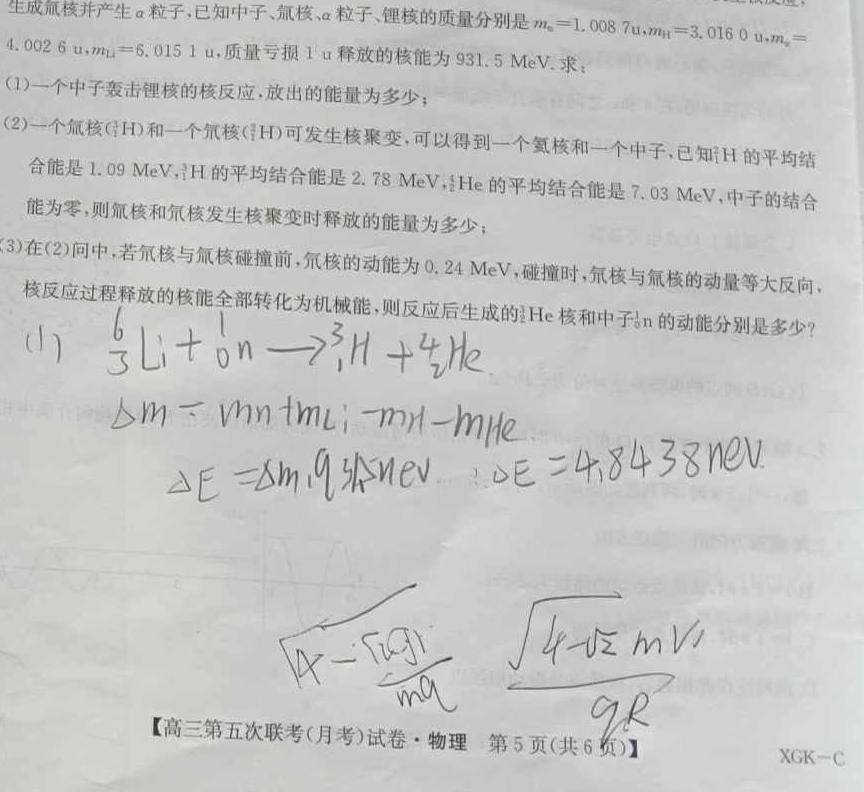 生成氚核并产生α粒子,已知中子、氚核、α粒子、锂核的质量分别是mₙ=1.008 7u,m_H=3.016 0 u,m_α=
4.002 6 u,m_Li=6.015 1 u,质量亏损1 u释放的核能为931.5 MeV.求:
(1)一个中子轰击锂核的核反应,放出的能量为多少;
(2)一个氚核(³₁H)和一个氘核(²₁H)可发生核聚变,可以得到一个氦核和一个中子,已知²₁H的平均结
合能是1.09 MeV,³₁H的平均结合能是2.78 MeV,⁴₂He的平均结合能是7.03 MeV,中子的结合
能为零,则氚核和氘核发生核聚变时释放的能量为多少;
(3)在(2)问中,若氘核与氚核碰撞前,氘核的动能为0.24 MeV,碰撞时,氘核与氚核的动量等大反向,
核反应过程释放的核能全部转化为机械能,则反应后生成的He核和中子¹₀n的动能分别是多少?
(1) ⁶₃Li+¹₀n→³₁H+⁴₂He
Δm=mn+mLi-mH-mHe
ΔE=Δm·931.5mev ∴ΔE=4.8438mev.
√4-√2 mV₁
qR
mq
【高三第五次联考(月考)试卷·物理 第5页(共6页)】
XGK-C